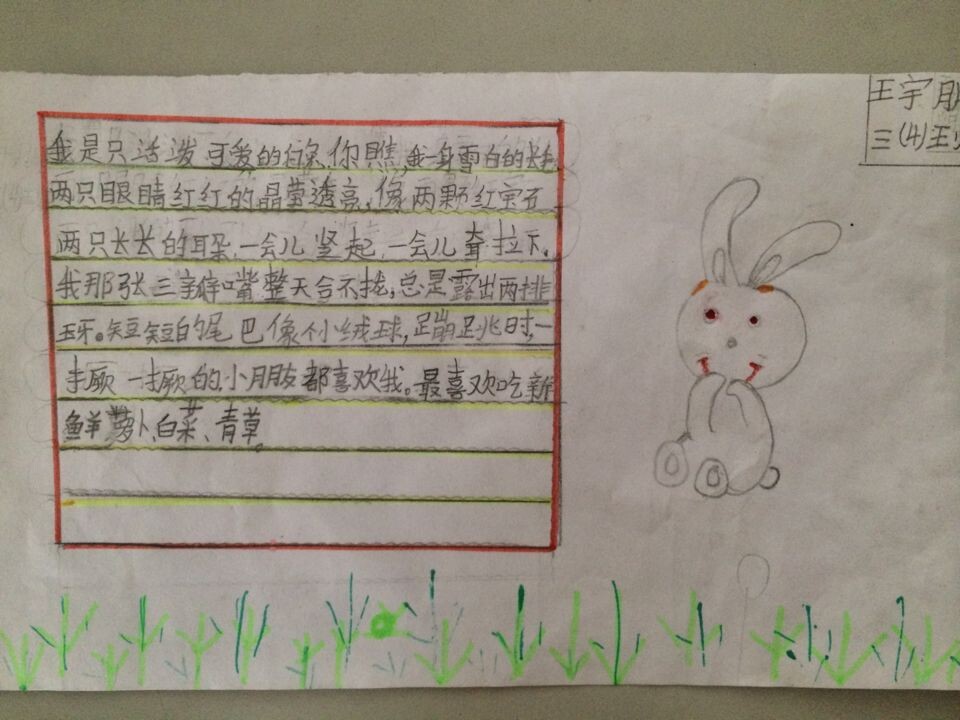 我是只活泼可爱的白兔,你瞧,我一身雪白的长毛,
两只眼睛红红的晶莹透亮,像两颗红宝石
两只长长的耳朵,一会儿竖起,一会儿耷拉下,
我那张三瓣嘴整天合不拢,总是露出两排
玉牙。短短的尾巴像个小绒球,蹦跳时,一
撅一撅的小朋友都喜欢我。最喜欢吃新
鲜萝卜、白菜、青草。
王宇
三(4)王